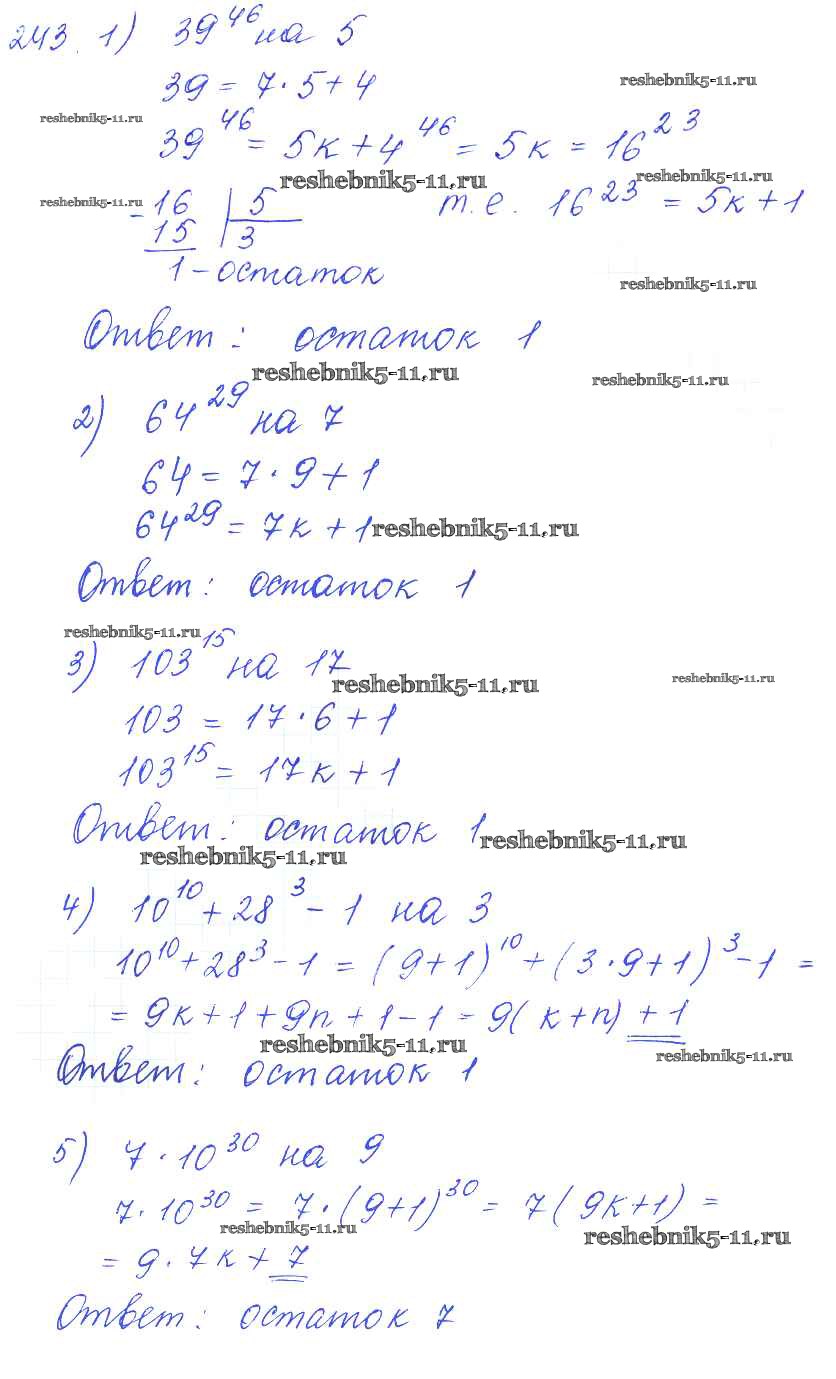 243. 1) 39^46 на 5
39 = 7·5+4
reshebnik5-11.ru
reshebnik5-11.ru
39^46 = 5к + 4^46 = 5к = 16^23
reshebnik5-11.ru
reshebnik5-11.ru
reshebnik5-11.ru
-16 | 5 т.е. 16^23 = 5к+1
15 3
1 - остаток
reshebnik5-11.ru
Ответ: остаток 1
reshebnik5-11.ru
reshebnik5-11.ru
2) 64^29 на 7
64 = 7·9+1
64^29 = 7к + 1
reshebnik5-11.ru
Ответ: остаток 1
reshebnik5-11.ru
3) 103^15 на 17
reshebnik5-11.ru
reshebnik5-11.ru
103 = 17·6+1
103^15 = 17к + 1
Ответ: остаток 1
reshebnik5-11.ru
reshebnik5-11.ru
4) 10^10 + 28^3 - 1 на 3
10^10 + 28^3 - 1 = (9+1)^10 + (3·9+1)^3 - 1 =
= 9к + 1 + 9n + 1 - 1 = 9(к+n) + 1
reshebnik5-11.ru
reshebnik5-11.ru
Ответ: остаток 1
5) 7·10^30 на 9
7·10^30 = 7·(9+1)^30 = 7(9к+1) =
reshebnik5-11.ru
reshebnik5-11.ru
= 9·7к + 7
Ответ: остаток 7